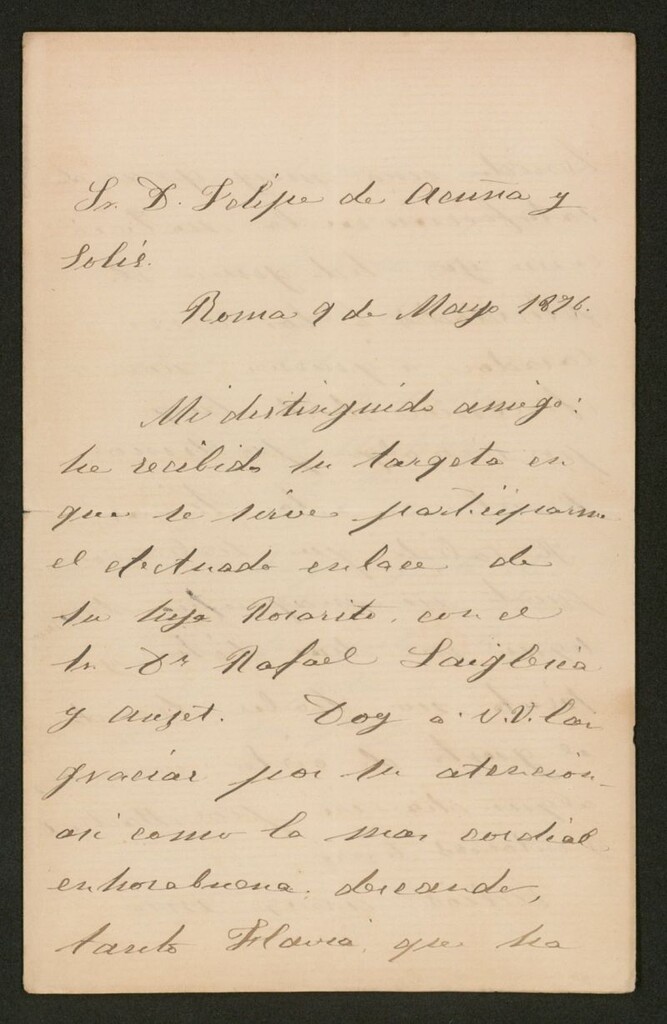 Sr. D. Felipe de Acuña y
Solís.
Roma 9 de Mayo 1896.
Mi distinguido amigo:
he recibido su targeta en
que se sirve participarme
el efectuado enlace de
su hija Rosarito, con el
Sr. Dr Rafael Laiglecia
y Auset. Doy a V.V. las
gracias por su atencion
asi como la mas cordial
enhorabuena; deseando,
tanto Flavia, que sea